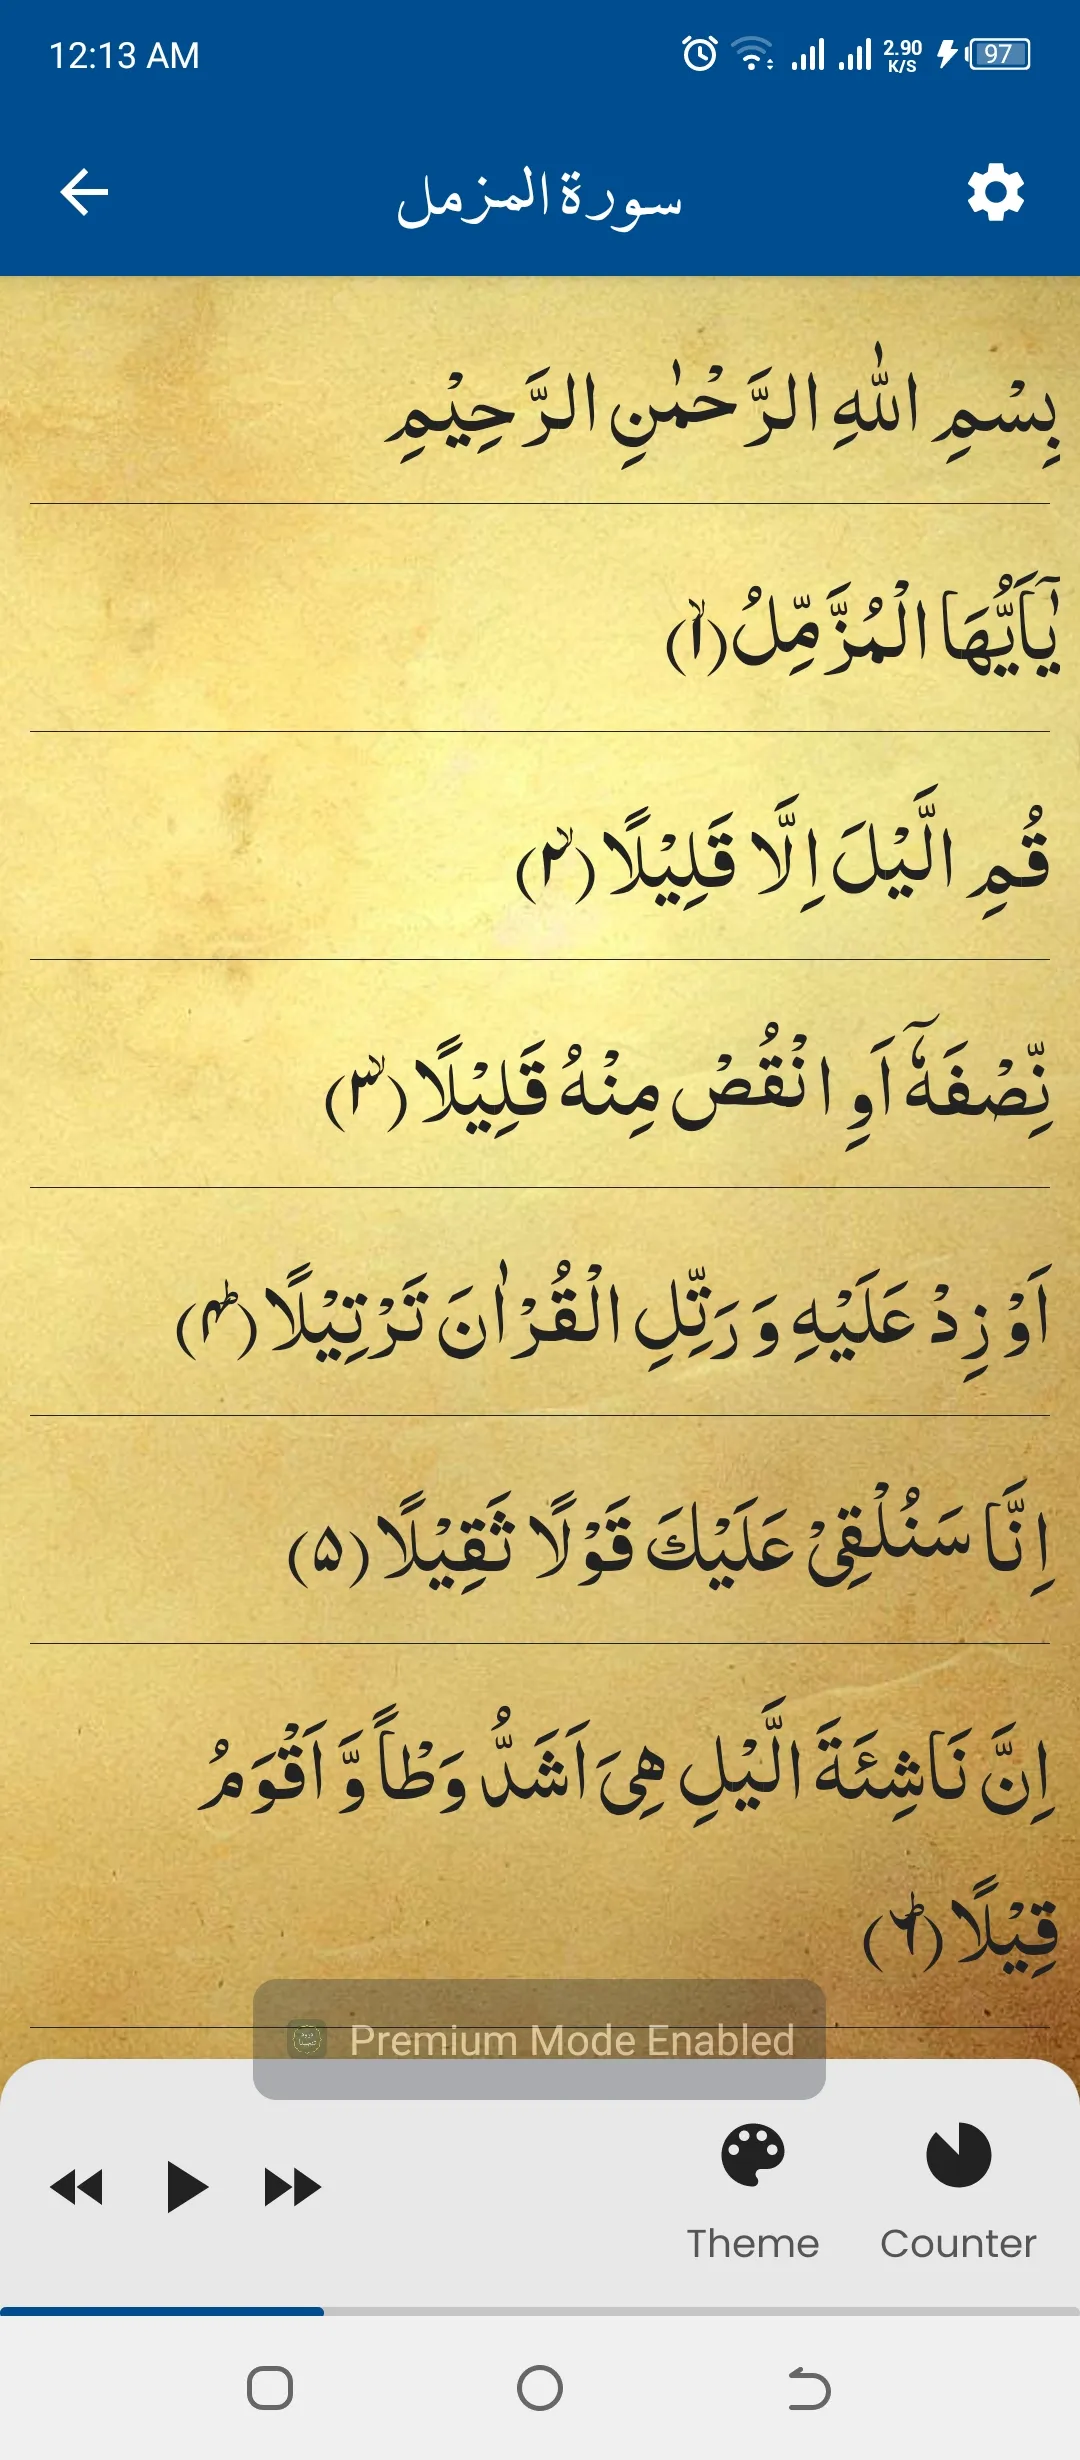 12:13 AM 2.90 K/S 97
سورة المزمل
بِسْمِ اللّٰهِ الرَّحْمٰنِ الرَّحِيْمِ
يٰۤاَيُّهَا الْمُزَّمِّلُ(ۙ۱)
قُمِ الَّيْلَ اِلَّا قَلِيْلًا(ۙ۲)
نِّصْفَهٗۤ اَوِ انْقُصْ مِنْهُ قَلِيْلًا(ۙ۳)
اَوْ زِدْ عَلَيْهِ وَ رَتِّلِ الْقُرْاٰنَ تَرْتِيْلًا(ؕ۴)
اِنَّا سَنُلْقِیْ عَلَيْكَ قَوْلًا ثَقِيْلًا(۵)
اِنَّ نَاشِئَةَ الَّيْلِ هِیَ اَشَدُّ وَطْاً وَّ اَقْوَمُ
قِيْلًا(ؕ۶)
Premium Mode Enabled
Theme Counter